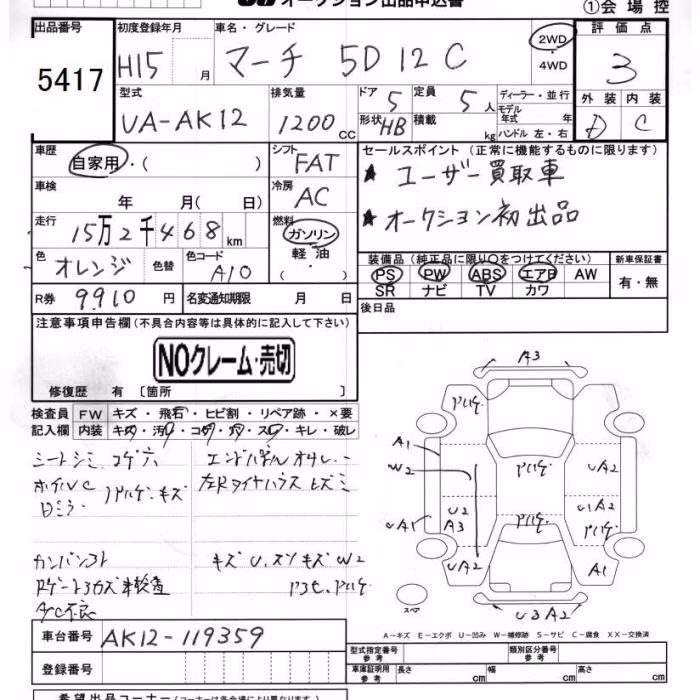 オークション出品申込書
①会場控
出品番号 初度登録年月 車名・グレード 評価点
5417 H15 月 マーチ 5D 12C 2WD 3
・4WD
型式 排気量 ドア 5 定員 5人 ディーラー・並行 外装 内装
UA-AK12 1200cc 形状 HB 積載 kg モデル年式 年 D C
ハンドル 左・右
車歴 自家用・( ) シフト FAT セールスポイント (正常に機能するものに限ります)
★ ユーザー買取車
車検 年 月( 日) 冷房 AC
★オークション初出品
走行 15万2千468km 燃料 ガソリン
軽油・( )
色 オレンジ 色替 色コード A10 装備品(純正品に限り○をつけてください) 新車保証書
PS PW ABS エアB AW 有・無
SR ナビ TV カワ
R券 9910円 名変通知期限 月 日 後日品
注意事項申告欄(不具合内容等は具体的に記入して下さい)
NOクレーム・売切
修復歴 有 〔箇所 〕
検査員 FW キズ・飛石・ヒビ割・リペア跡・×要
記入欄 内装 キズ・汚れ・コゲ・穴・スレ・キレ・破レ
シートシミ コゲ穴
左Rタイヤハウス
カンバンコト
キズ U.スソキズ W2
未検査
A/C不良
A3
ハゲ
A1
W2
ハゲ
UA2
U2
A3
U1A2
UA1
ハゲ
ハゲ
UA2
A1
スペア
U3A2
A-キズ E-エクボ U-凹み W-補修跡 S-サビ C-腐食 XX-交換済
車台番号 AK12-119359
登録番号
型式指定番号 参考 類別区分番号 参考
車庫証明用 参考 長さ cm 幅 cm 高さ cm
希望出品コーナー